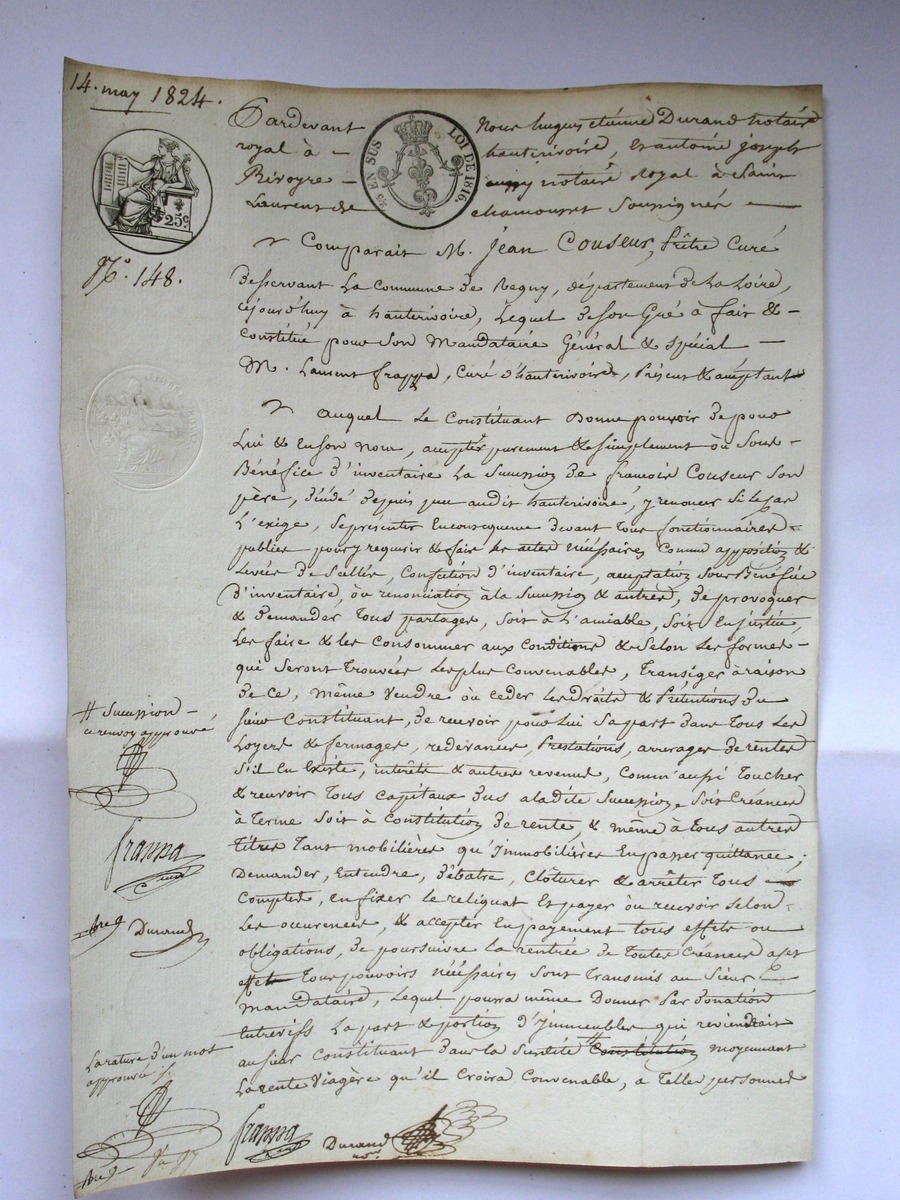 14. may 1824.
Pardevant Nous hugues etienne Durand notaire
royal à hauterivoire, et antoine joseph
Rivoyre notaire Royal à Saint
Laurent de chamousset soussignés
EN SUS LOI DE 1816.
25c.
N.º 148.
Comparait M. Jean Couseur, Prêtre Curé
desservant La Commune de Regny, département de La Loire,
cejourd'huy à hauterivoire, Lequel de son Gré à fait &
constitué pour Son Mandataire Général & Spécial
M. Laurent frappa, Curé d'hauterivoire, Présent & acceptant
Auquel Le Constituant Donne pouvoir de pour
Lui & En son Nom, accepter purement & simplement ou Sous
Bénéfice d'inventaire La Succession de françois Couseur Son
père, décédé depuis peu audit hauterivoire, y renoncer Si le cas
L'exige, Se présenter En conséquence devant Tous fonctionnaires
publics pour y requérir & faire les actes nécéssaires Comme apposition &
Levées de Scellés, Confection d'inventaire, acceptation Sous Bénéfice
d'inventaire, ou renonciation à la Succession & autres, de provoquer
& demander Tous partages, Soit à L'amiable, Soit En justice,
Les faire & les Consommer aux Conditions & Selon Les formes
qui Seront Trouvées Les plus Convenables, Transiger à raison
de ce, même Vendre ou Ceder Les droits & Prétentions du
sieur Constituant, de recevoir pour Lui Sa part dans Tous Les
Loyers & fermages, redevances, Prestations, arrerages de rentes
S'il En Existe, intérêts & autres revenus, Comm'aussi Toucher
& recevoir Tous Capitaux dus a la dite Succession, Soit Créances
à Terme Soit à Constitution de rente, & même à Tous autres
Titres Tant mobilières qu'Immobilières En passer quittance;
Demander, Entendre, débatre, Cloturer & arrêter Tous
Comptes, en fixer le reliquat Et payer ou recevoir Selon
Les occurences, & accepter En payement tous effets ou
obligations, de poursuivre La rentrée de Toutes Créances a cet
effet Tous pouvoirs nécéssaires Sont Transmis au Sieur
Mandataire, Lequel pourra même Donner Par Donation
Entrevifs La part & portion d'Immeubles qui reviendrait
au sieur Constituant dans la Susdite # Constitution moyennant
La rente Viagère qu'il Croira Convenable, a Telles personnes
# Succession
ce renvoy approuvé
frappa
curé
Durand
La rature d'un mot
approuvée
frappa
curé
Durand